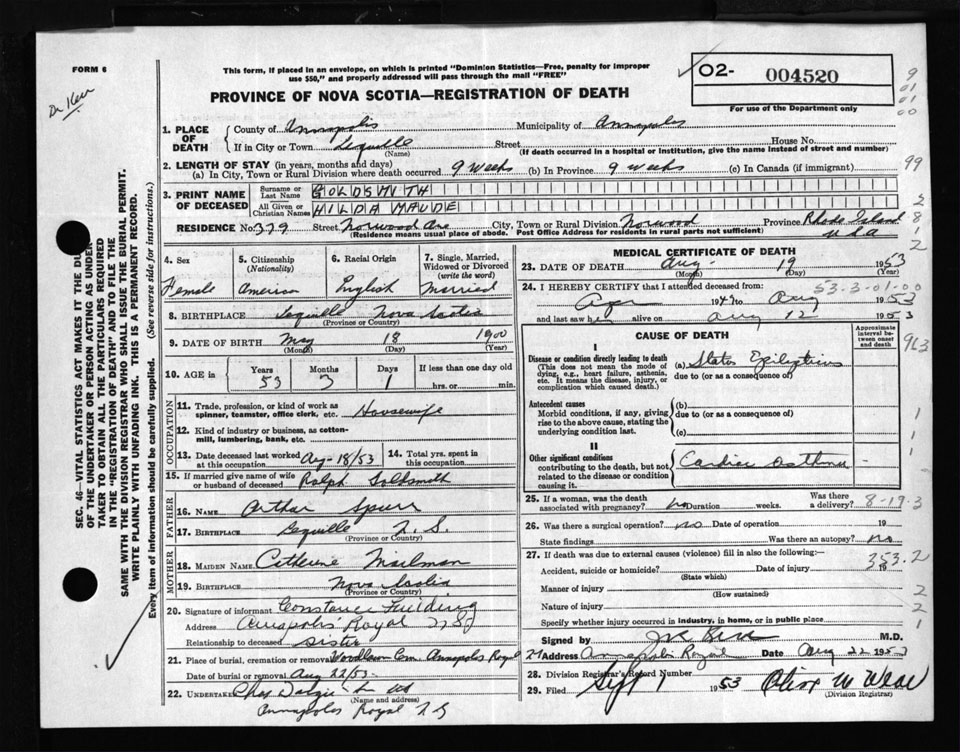 FORM 6
Dr Kerr
This form, if placed in an envelope, on which is printed "Dominion Statistics—Free, penalty for improper
use $50," and properly addressed will pass through the mail "FREE"
PROVINCE OF NOVA SCOTIA—REGISTRATION OF DEATH
O2- 004520
For use of the Department only
9
01
01
00
1. PLACE OF DEATH
County of Annapolis Municipality of Annapolis
If in City or Town Lequille Street House No.
(Name) (If death occurred in a hospital or Institution, give the name instead of street and number)
2. LENGTH OF STAY (in years, months and days)
(a) In City, Town or Rural Division where death occurred 9 weeks (b) In Province 9 weeks (c) In Canada (if immigrant)
99
3. PRINT NAME OF DECEASED
Surname or Last Name GOLDSMITH
All Given or Christian Names HILDA MAUDE
2
8
1
2
RESIDENCE No. 379 Street Norwood Ave City, Town or Rural Division Norwood Province Rhode Island
USA
(Residence means usual place of abode. Post Office Address for residents in rural parts not sufficient)
SEC. 46—VITAL STATISTICS ACT MAKES IT THE DU
OF THE UNDERTAKER OR PERSON ACTING AS UNDER-
TAKER TO OBTAIN ALL THE PARTICULARS REQUIRED
IN THE "REGISTRATION OF DEATH" AND TO FILE THE
SAME WITH THE DIVISION REGISTRAR WHO SHALL ISSUE THE BURIAL PERMIT.
WRITE PLAINLY WITH UNFADING INK. THIS IS A PERMANENT RECORD.
Every item of information should be carefully supplied. (See reverse side for instructions.)
4. Sex
Female
5. Citizenship
(Nationality)
America
6. Racial Origin
English
7. Single, Married,
Widowed or Divorced
(write the word)
Married
8. BIRTHPLACE Lequille Nova Scotia
(Province or Country)
9. DATE OF BIRTH May 18 1900
(Month) (Day) (Year)
10. AGE in
Years Months Days If less than one day old
53 3 1 hrs. or min.
OCCUPATION
11. Trade, profession, or kind of work as
spinner, teamster, office clerk, etc. Housewife
12. Kind of industry or business, as cotton-
mill, lumbering, bank, etc.
13. Date deceased last worked
at this occupation Aug-18/53
14. Total yrs. spent in
this occupation
15. If married give name of wife
or husband of deceased Ralph Goldsmith
FATHER
16. Name Arthur Spurr
17. Birthplace Lequille N.S.
(Province or Country)
MOTHER
18. MAIDEN NAME Catherine Mailman
19. BIRTHPLACE Nova Scotia
(Province or Country)
20. Signature of informant Constance Fielding
Address Annapolis Royal N S
Relationship to deceased Sister
21. Place of burial, cremation or removal Woodlawn Cem Annapolis Royal
Date of burial or removal Aug 22/53
22. UNDERTAKER Chas
(Name and address)
Annapolis Royal N S
MEDICAL CERTIFICATE OF DEATH
23. DATE OF DEATH Aug 19 1953
(Month) (Day) (Year)
24. I HEREBY CERTIFY that I attended deceased from: 53-3-01-00
1947 to Aug 1953
and last saw her alive on Aug 12 1953
CAUSE OF DEATH
Approximate interval between onset and death
963
I
Disease or condition directly leading to death
(This does not mean the mode of
dying, e.g., heart failure, asthenia,
etc. It means the disease, injury, or
complication which caused death.)
(a) Status Epilepticus
due to (or as a consequence of)
Antecedent causes
Morbid conditions, if any, giving
rise to the above cause, stating the
underlying condition last.
(b)
due to (or as a consequence of)
(c)
1
1
1
II
Other significant conditions
contributing to the death, but not
related to the disease or condition
causing it.
Cardiac asthma
25. If a woman, was the death
associated with pregnancy? no Duration weeks. Was there a delivery? 8-19-3
26. Was there a surgical operation? no Date of operation 19
State findings Was there an autopsy? no
27. If death was due to external causes (violence) fill in also the following:—
353.2
Accident, suicide or homicide? Date of injury 19
(State which)
Manner of injury 2
(How sustained)
Nature of injury 2
Specify whether injury occurred in industry, in home, or in public place 1
Signed by Kerr M.D.
Address Annapolis Royal Date Aug 22 1953
28. Division Registrar's Record Number
29. Filed Sept 1 1953
(Division Registrar)